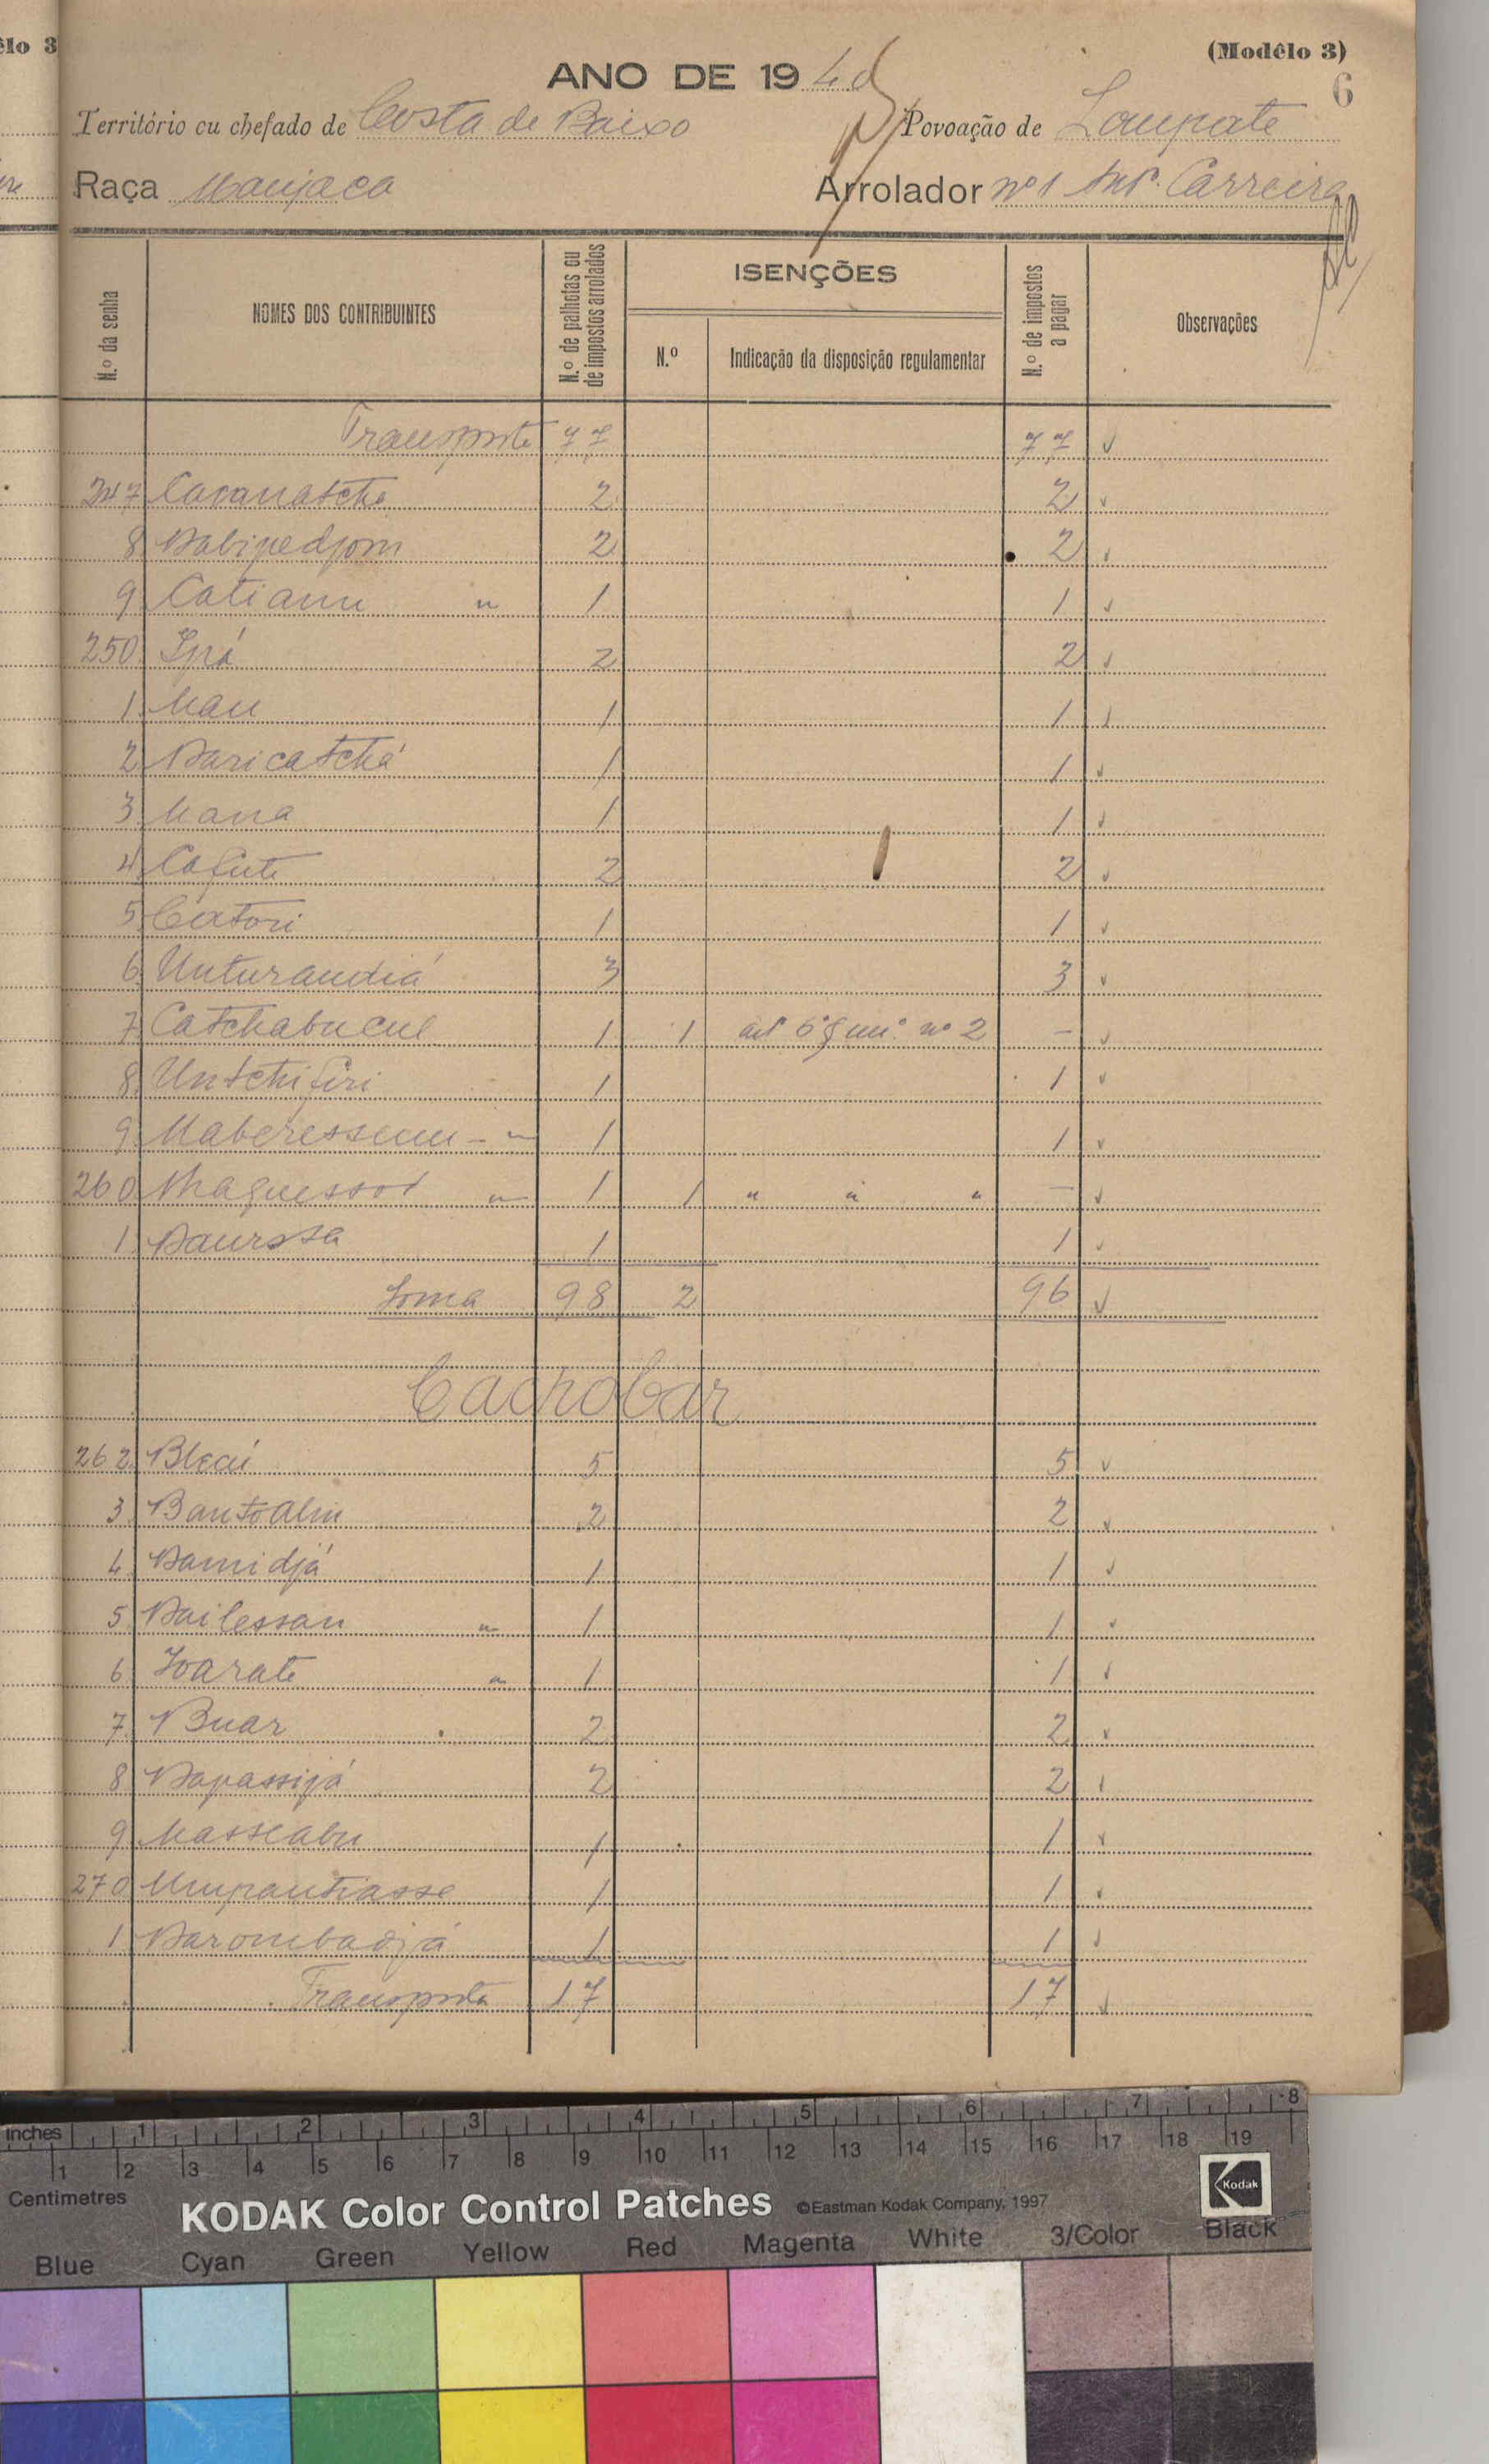 êlo 3
(Modêlo 3)
6
ANO DE 19
Território ou chefado de Costa de Baixo Povoação de Laupate
Raça Manjaca Arrolador nº 1 Antº. Carreira
N.º da senha
NOMES DOS CONTRIBUINTES
N.º de palhotas ou de impostos arrolados
ISENÇÕES
N.º
Indicação da disposição regulamentar
N.º de impostos a pagar
Observações
Transporte 77 77 ✓
247 2 2 ✓
8 2 2 ✓
9 Catianu " 1 1 ✓
250 Ipá 2 2 ✓
1 Nau 1 1 ✓
2 Naricatchá 1 1 ✓
3 Nana 1 1 ✓
4 Cafute 2 2 ✓
5 Catori 1 1 ✓
6 Unturandiá 3 3 ✓
7 Catchabucul 1 1 artº 6º § uniº nº 2 - ✓
8 Untchifiri 1 1 ✓
9 - " 1 1 ✓
260 " 1 1 " " " - ✓
1 1 1 ✓
Soma 98 2 96 ✓
Cachobar
262 Blecú 5 5 ✓
3 Bantoalin 2 2 ✓
4 Namidjá 1 1 ✓
5 Nailessan " 1 1 ✓
6 " 1 1 ✓
7 Buar 2 2 ✓
8 Napassijá 2 2 ✓
9 Nasseabu 1 1 ✓
270 Umpantiasse 1 1 ✓
1 Narombadjá 1 1 ✓
Transporte 17 17 ✓
inches 1 2 3 4 5 6 7 8
1 2 3 4 5 6 7 8 9 10 11 12 13 14 15 16 17 18 19
Centimetres
KODAK Color Control Patches ©Eastman Kodak Company, 1997 Kodak
Blue Cyan Green Yellow Red Magenta White 3/Color Black